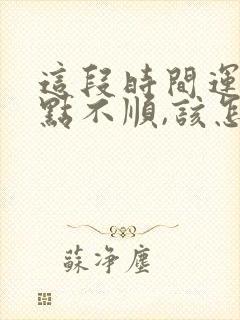 這段時間運
點不順,該怎
蘇淨塵